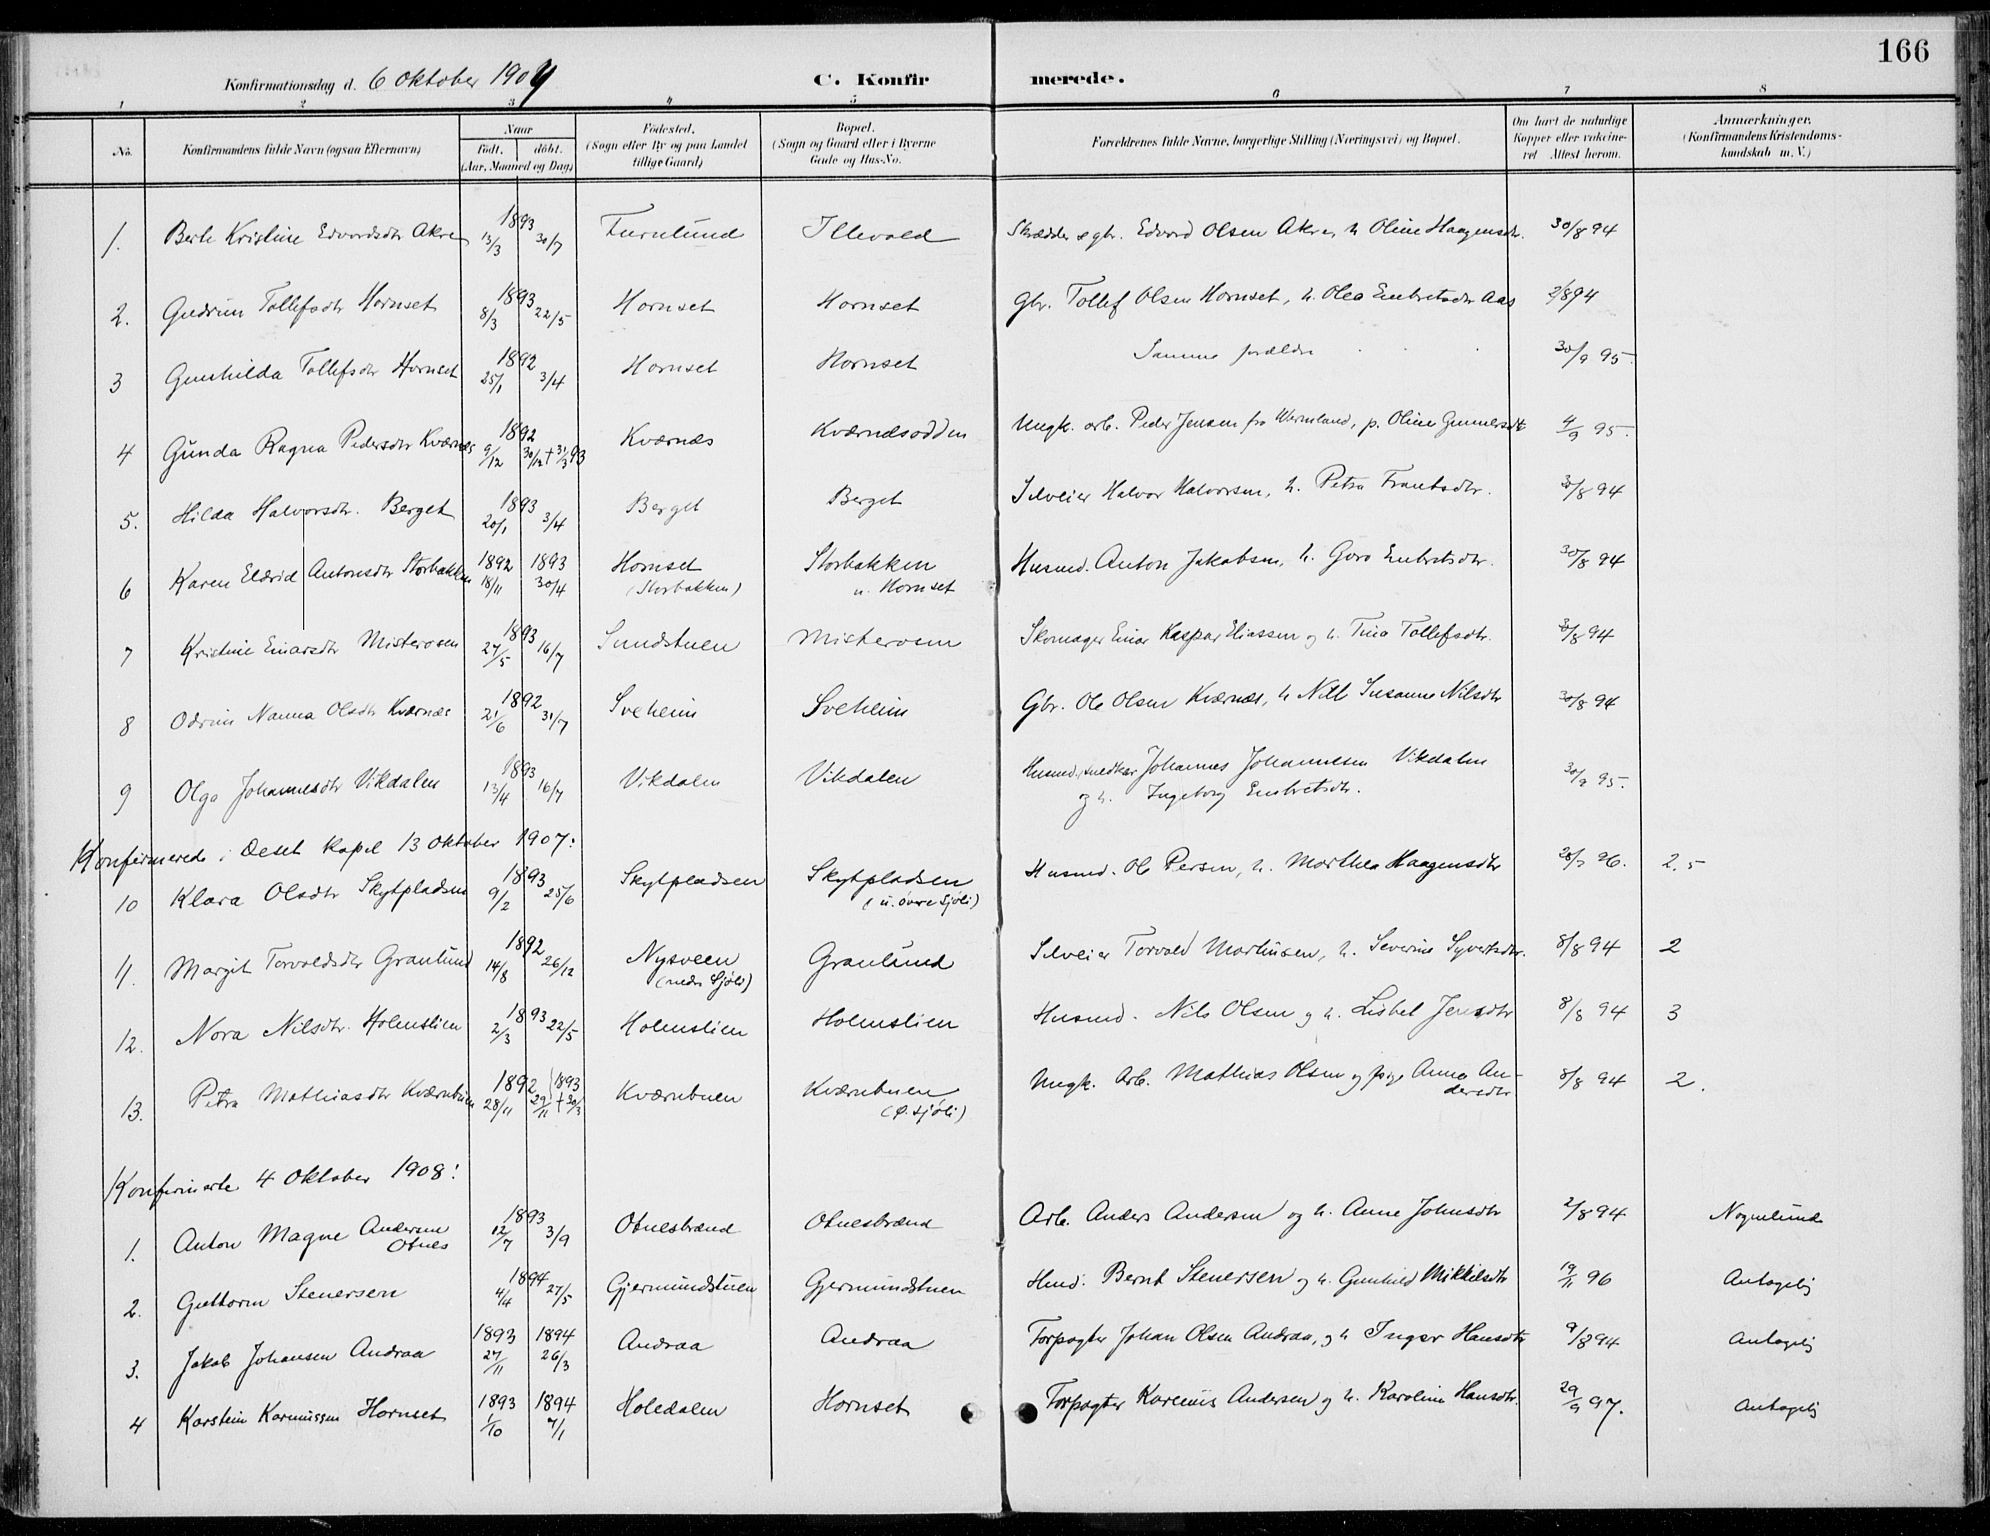 166
Konfirmationsdag d. 6 Oktober 1907
C. Konfirmerede.
1 2 3 4 5 6 7 8
No. Konfirmandens fulde Navn (ogsaa Efternavn) Naar født. døbt. (Aar, Maaned og Dag) Fødested. (Sogn eller By og paa Landet tillige Gaard) Bopæl. (Sogn og Gaard eller i Byerne Gade og Hus-No. Forældrenes fulde Navne, borgerlige Stilling (Næringsvei) og Bopæl. Om havt de naturlige Kopper eller vakcineret Attest herom. Anmærkninger. (Konfirmandens Kristendomskundskab m. V.)
1. Berte Kristine Edvardsdtr Akre 1893 13/3 30/7 Furulund Illevold Skrædder & gbr. Edvard Olsen Akre, h. Oline Haagensdtr. 30/8 94
2. Gudrun Tollefsdtr Hornset 1893 8/3 22/5 Hornset Hornset Gbr. Tollef Olsen Hornset, h. Olea Embretsdtr Aas 2/8 94
3 Gunhilda Tollefsdtr Hornset 1892 25/1 3/4 Hornset Hornset Samme forældre 30/9 95.
4 Gunda Ragna Pedersdtr Kværnes 1892 9/12 30/12 + 31/3 93 Kværnes Kværnesodden Ungk. arb. Peder Jensen fra Wermland, p. Oline Gunnersdtr 4/9 95.
5. Hilda Halvorsdtr. Berget 1893 20/1 3/4 Berget Berget Selveier Halvor Halvorsen, h. Petra Frantsdtr. 30/8 94
6 Karen Eldrid Antonsdtr Storbakken 1892 18/11 1893 30/4 Hornset (Storbakken) Storbakken u. Hornset Husmd. Anton Jakobsen, h. Goro Embretsdtr. 30/8 94
7 Kristine Einarsdtr Misterosen 1893 27/5 16/7 Sundstuen Misterosen Skomager Einar Kaspar Eliassen og h. Tina Tollefsdtr. 30/8 94
8 Odrun Nanna Olsdtr Kværnes 1892 21/6 31/7 Sveheim Sveheim Gbr. Ole Olsen Kværnes, h. Susanne Nilsdtr 30/8 94
9 Olga Johannesdtr Vikdalen 1893 13/4 16/7 Vikdalen Vikdalen Husmd. snedker Johannes Johannesen Vikdalen
og h. Ingeborg Embretsdtr. 30/9 95.
Konfirmerede i Deset kapel 13 Oktober 1907:
10 Klara Olsdtr Skytpladsen 1893 9/2 25/6 Skytpladsen Skytpladsen (u. øvre Sjøli) Husmd. Ole Persen, h. Marthea Haagensdtr 96. 2.5
11. Margit Torvaldsdtr Granlund 1892 14/8 26/12 Nysveen (nedre Sjøli) Granlund Selveier Torvald Martinsen, h. Severine Syvertsdtr. 8/8 94 2
12. Nora Nilsdtr. Holmslien 1893 2/3 22/5 Holmslien Holmslien Husmd. Nils Olsen og h. Lisbet Jensdtr 8/8 94 3
13. Petra Mathiasdtr Kværnbuen 1892 28/11 29/11 + 1893 30/3 Kværnbuen Kværnbuen (ø. Sjøli) Ungk. Arb. Mathias Olsen og pige Anna Andersdtr 8/8 94 2.
Konfirmerte 4 Oktober 1908:
1. Anton Magne Andersen Otnes 1893 12/7 3/9 Otnesbrænd Otnesbrænd Arb. Anders Andersen og h. Anne Johnsdtr 2/8 94
2. Guttorm Stenersen 1894 4/4 27/5 Gjermundstuen Gjermundstuen Husmd. Bernt Stenersen og h. Gunhild Mikkelsdtr 19/11 96 Antagelig
3. Jakob Johansen Andraa 1893 27/11 1894 26/3 Andraa Andraa Forpagter Johan Olsen Andraa, og h. Inger Hansdtr 9/8 94 Antagelig
4 Karstein Karenussen Hornset 1893 1/10 1894 7/1 Holedalen Hornset Forpagter Karenus Andersen og h. Karoline Hansdtr. 29/9 97. Antagelig